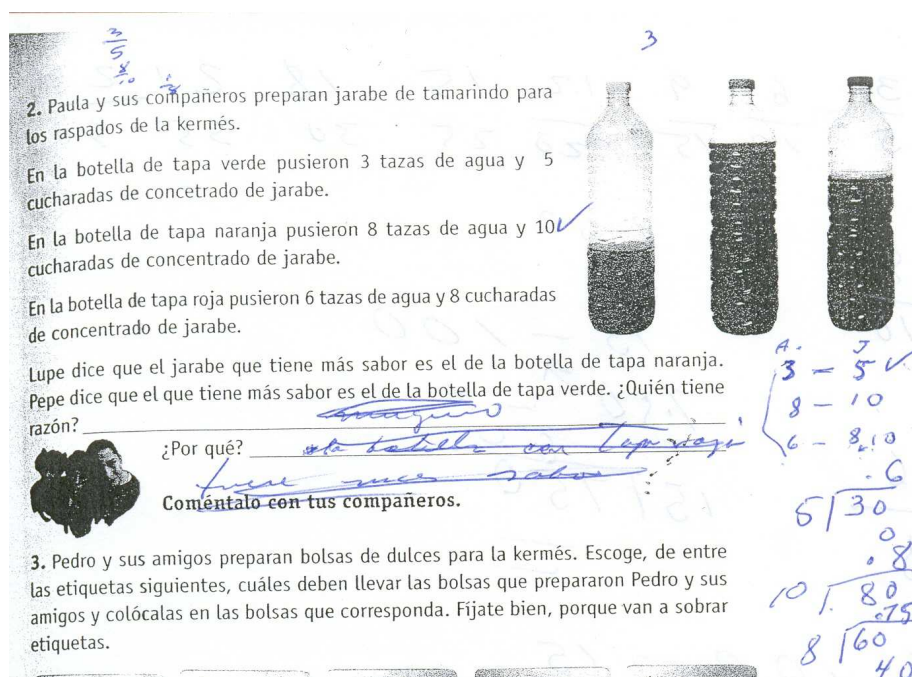 3/5
8/10
3
2. Paula y sus compañeros preparan jarabe de tamarindo para
los raspados de la kermés.
En la botella de tapa verde pusieron 3 tazas de agua y 5
cucharadas de concetrado de jarabe.
En la botella de tapa naranja pusieron 8 tazas de agua y 10 ✓
cucharadas de concentrado de jarabe.
En la botella de tapa roja pusieron 6 tazas de agua y 8 cucharadas
de concentrado de jarabe.
Lupe dice que el jarabe que tiene más sabor es el de la botella de tapa naranja.
Pepe dice que el que tiene más sabor es el de la botella de tapa verde. ¿Quién tiene
razón? ninguno
¿Por qué? la botella con tapa roja
tiene mas sabor
Coméntalo con tus compañeros.
3. Pedro y sus amigos preparan bolsas de dulces para la kermés. Escoge, de entre
las etiquetas siguientes, cuáles deben llevar las bolsas que prepararon Pedro y sus
amigos y colócalas en las bolsas que corresponda. Fíjate bien, porque van a sobrar
etiquetas.
A. J
3 - 5 ✓
8 - 10
6 - 8
.6
5 30
0
.8
10 80
.75
8 60
40